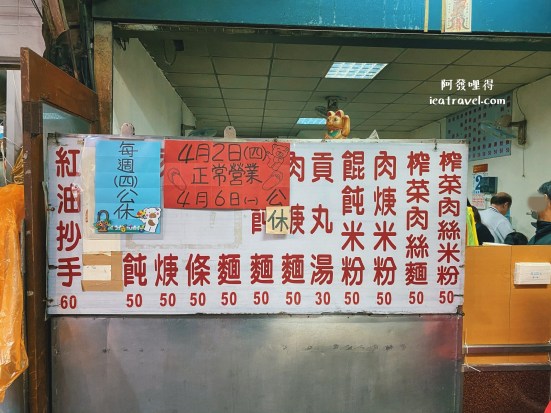 阿發哩得
icatravel.com
榨菜肉絲米粉 50
榨菜肉絲麵 50
肉焿米粉 50
餛飩米粉 50
貢丸湯 30
肉焿麵 50
飩麵 50
麵 50
條 50
焿 50
飩 50
紅油抄手 60
每週(四)公休
4月2日(四)
正常營業
4月6日(一)公休